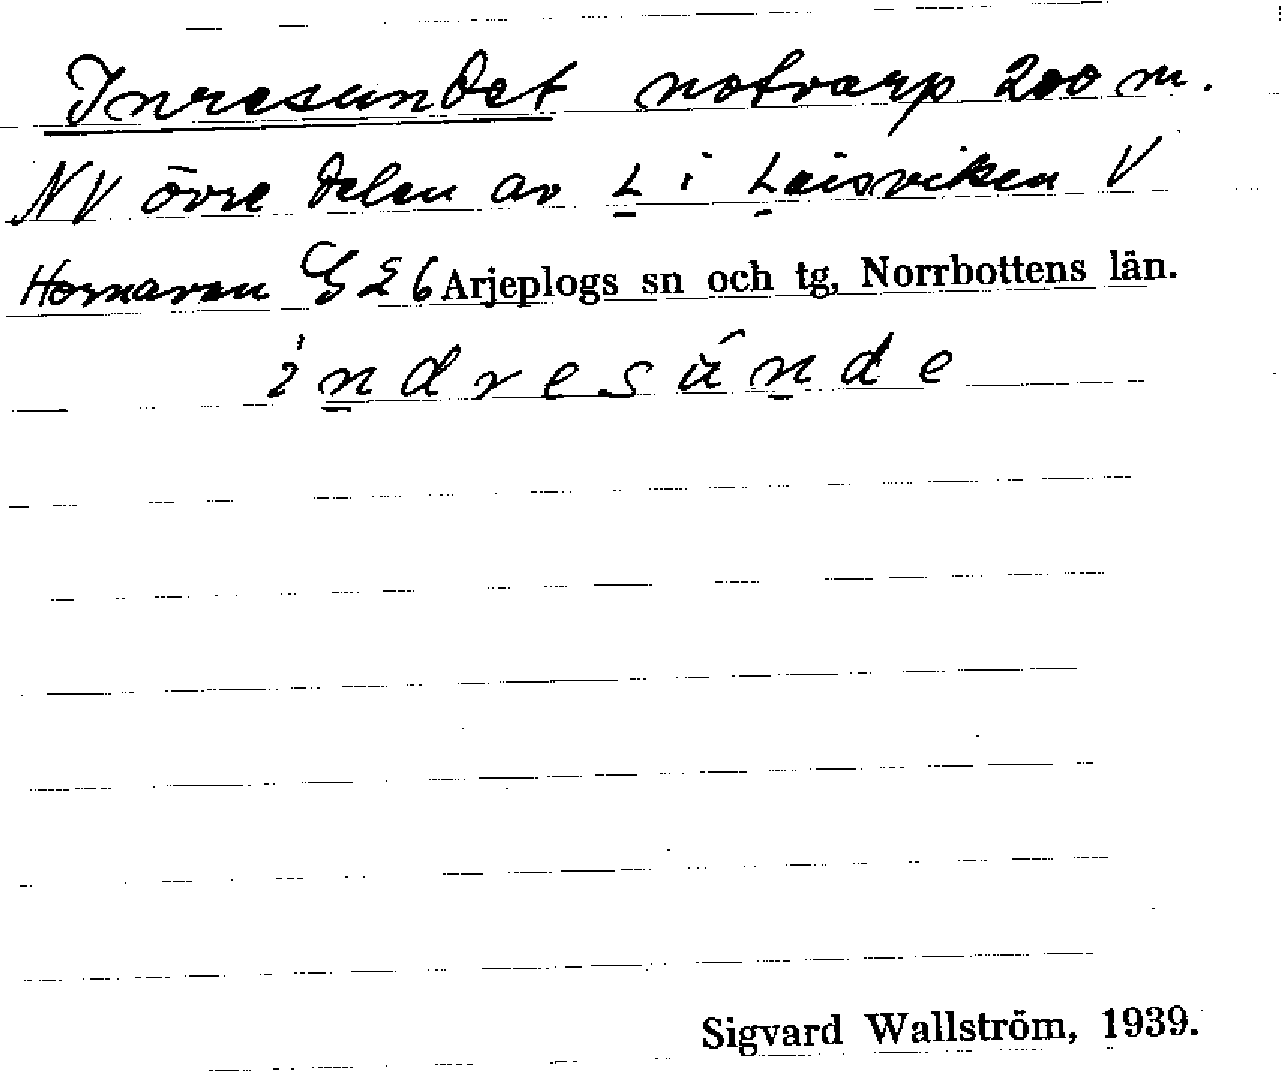 Inresundet notvarp 200 m.
NV övre delen av L i Laisviken V
Hornavan G 26 Arjeplogs sn och tg, Norrbottens län.
indresúnde
Sigvard Wallström, 1939.